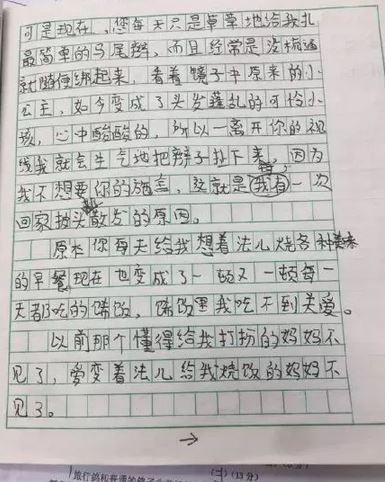 可是现在，您每天只是草草地给我扎
最简单的马尾辫，而且经常是没梳通
就随便绑起来，看着镜子中原来的小
公主，如今变成了头发蓬乱的可怜小
孩，心中酸酸的，所以一离开你的视
线我就会生气地把辫子扯下来，因为
我不想要你的施舍，这就是我有一次
回家披头散发的原因。
原本你每天给我想着法儿烧各种美味
的早餐现在也变成了一顿又一顿每一
天都吃的馎饭，馎饭里我吃不到关爱。
以前那个懂得给我打扮的妈妈不
见了，爱变着法儿给我烧饭的妈妈不
见了。
→
旅行鸽和普通的鸽子
(二) (13分)